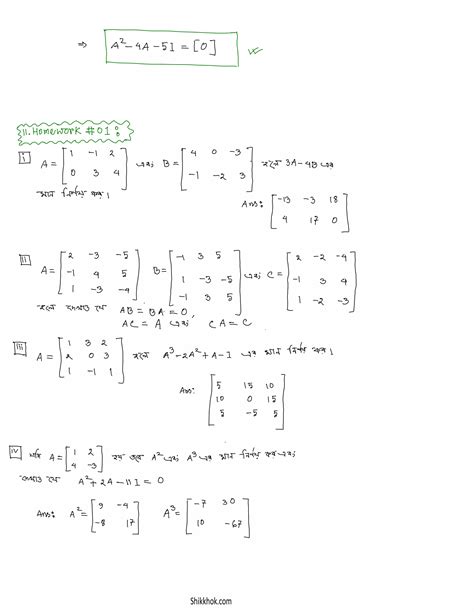 ⇒ A² - 4A - 5I = [0]
11. Homework #01:
i A = [1 -1 2; 0 3 4] এবং B = [4 0 -3; -1 -2 3] হলে 3A - 4B এর
মান নির্ণয় কর।
Ans: [-13 -3 18; 4 17 0]
ii A = [2 -3 -5; -1 4 5; 1 -3 -4] B = [-1 3 5; 1 -3 -5; -1 3 5] এবং C = [2 -2 -4; -1 3 4; 1 -2 -3]
হলে দেখাও যে AB = BA = 0,
AC = A এবং CA = C
iii A = [1 3 2; 2 0 3; 1 -1 1] হলে A³ - 2A² + A - I এর মান নির্ণয় কর।
Ans: [5 15 10; 10 0 15; 5 -5 5]
iv যদি A = [1 2; 4 -3] হয় তবে A² এবং A³ এর মান নির্ণয় কর এবং
দেখাও যে A² + 2A - 11I = 0
Ans: A² = [9 -4; -8 17] A³ = [-7 30; 10 -67]
Shikkhok.com